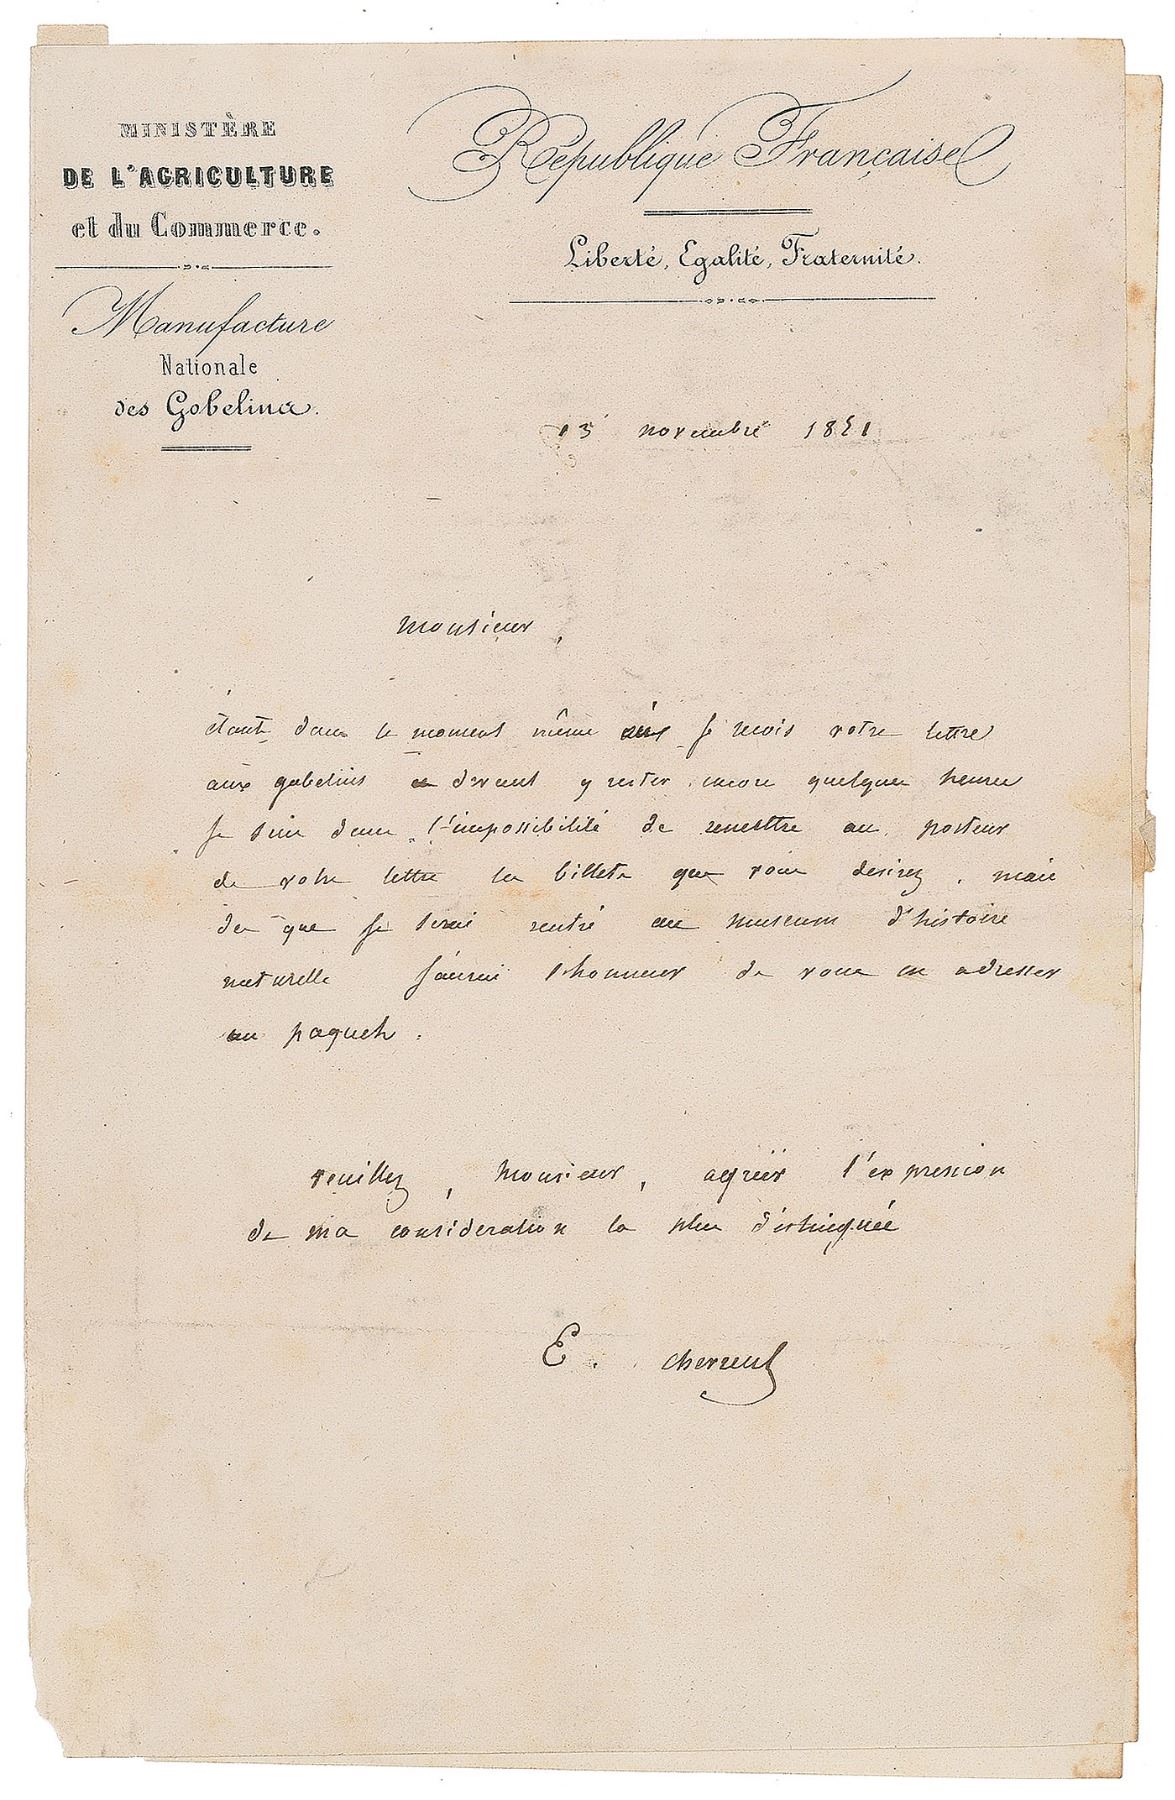 MINISTÈRE
DE L'AGRICULTURE
et du Commerce.
Manufacture
Nationale
des Gobelins.
République Française
Liberté, Egalité, Fraternité.
13 novembre 1851
Monsieur,
étant dans le moment même où je reçois votre lettre
aux gobelins et devant y rester encore quelques heures
je suis dans l'impossibilité de remettre au porteur
de votre lettre les billets que vous desirez. mais
des que je serai rentré au museum d'histoire
naturelle j'aurai l'honneur de vous en adresser
un paquet.
veuillez, Monsieur, agréer l'expression
de ma consideration la plus distinguée
E. chevreul